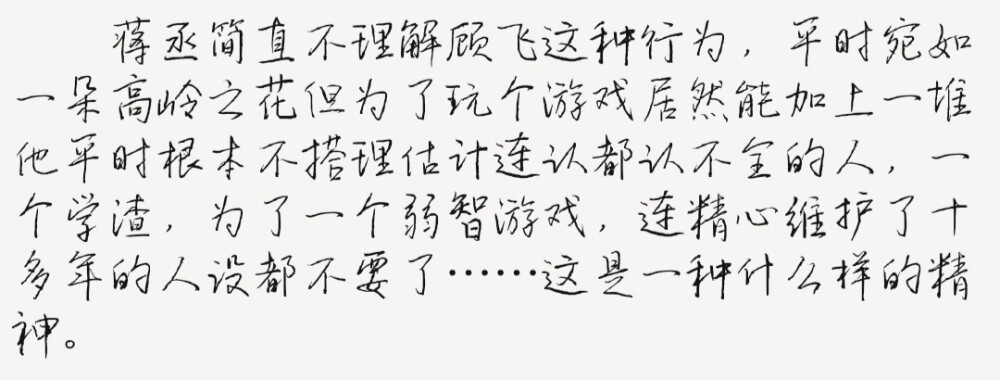 蒋丞简直不理解顾飞这种行为，平时宛如
一朵高岭之花但为了玩个游戏居然能加上一堆
他平时根本不搭理估计连认都认不全的人，一
个学渣，为了一个弱智游戏，连精心维护了十
多年的人设都不要了……这是一种什么样的精
神。